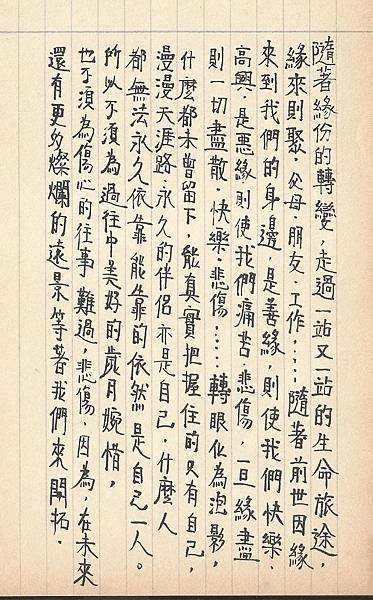 隨著緣份的轉變，走過一站又一站的生命旅途，
緣來則聚，父母．朋友．工作，…．隨著前世因緣
來到我們的身邊，是善緣，則使我們快樂．
高興，是惡緣則使我們痛苦悲傷，一旦緣盡
則一切盡散．快樂．悲傷…．轉眼化為泡影，
什麼都未曾留下，能真實把握住的只有自己，
漫漫天涯路．永久的伴侶亦是自己，什麼人
都無法永久依靠能靠的依然是自己一人。
所以不須為過往中美好的歲月婉惜，
也不須為傷心的往事難過，悲傷．因為，在未來
還有更多燦爛的遠景等著我們來開拓．